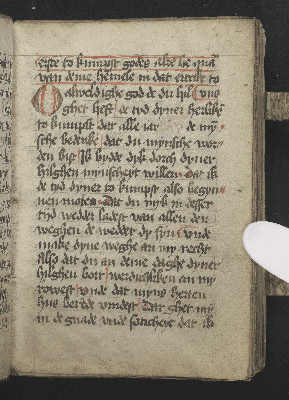 erste to kumpst godes alse he qua
van deme hemele in dat ertrike to
O Alweldighe god de du hil vns
ghet hest de tyd dyner hertliken
to kumpst dat alle iar de my
sche bedenke dat du mynsche wor
den bist Ik bydde dyk dorch dyner
hilghen mynscheyt willen dat ik
de tyd dyner to kumpst also begyn
nen mote Dat du myk in desser
tyd wedder ladest van allen den
weghen de wedder dy syn vnde
make dyne weghe an my recht
Also dat du an deme daghe dyner
hilghen bort werdichliken an my
rowest vnde dat mynes herten
hus berede vindest Dar ghet my
in de gnade vnde salicheyt dat ik